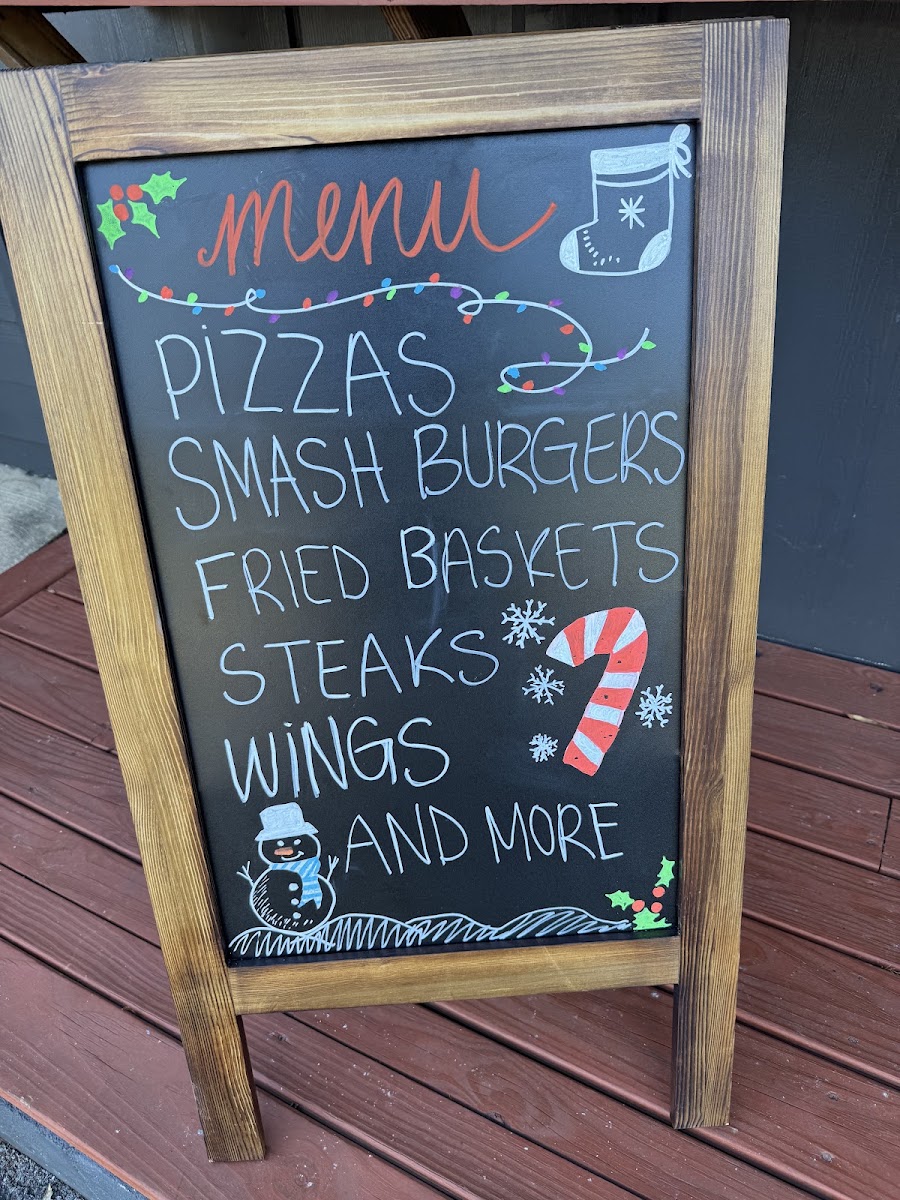 menu
PiZZAS
SMASH BURGERS
FRIED BASKETS
STEAKS
WiNGS
AND MORE